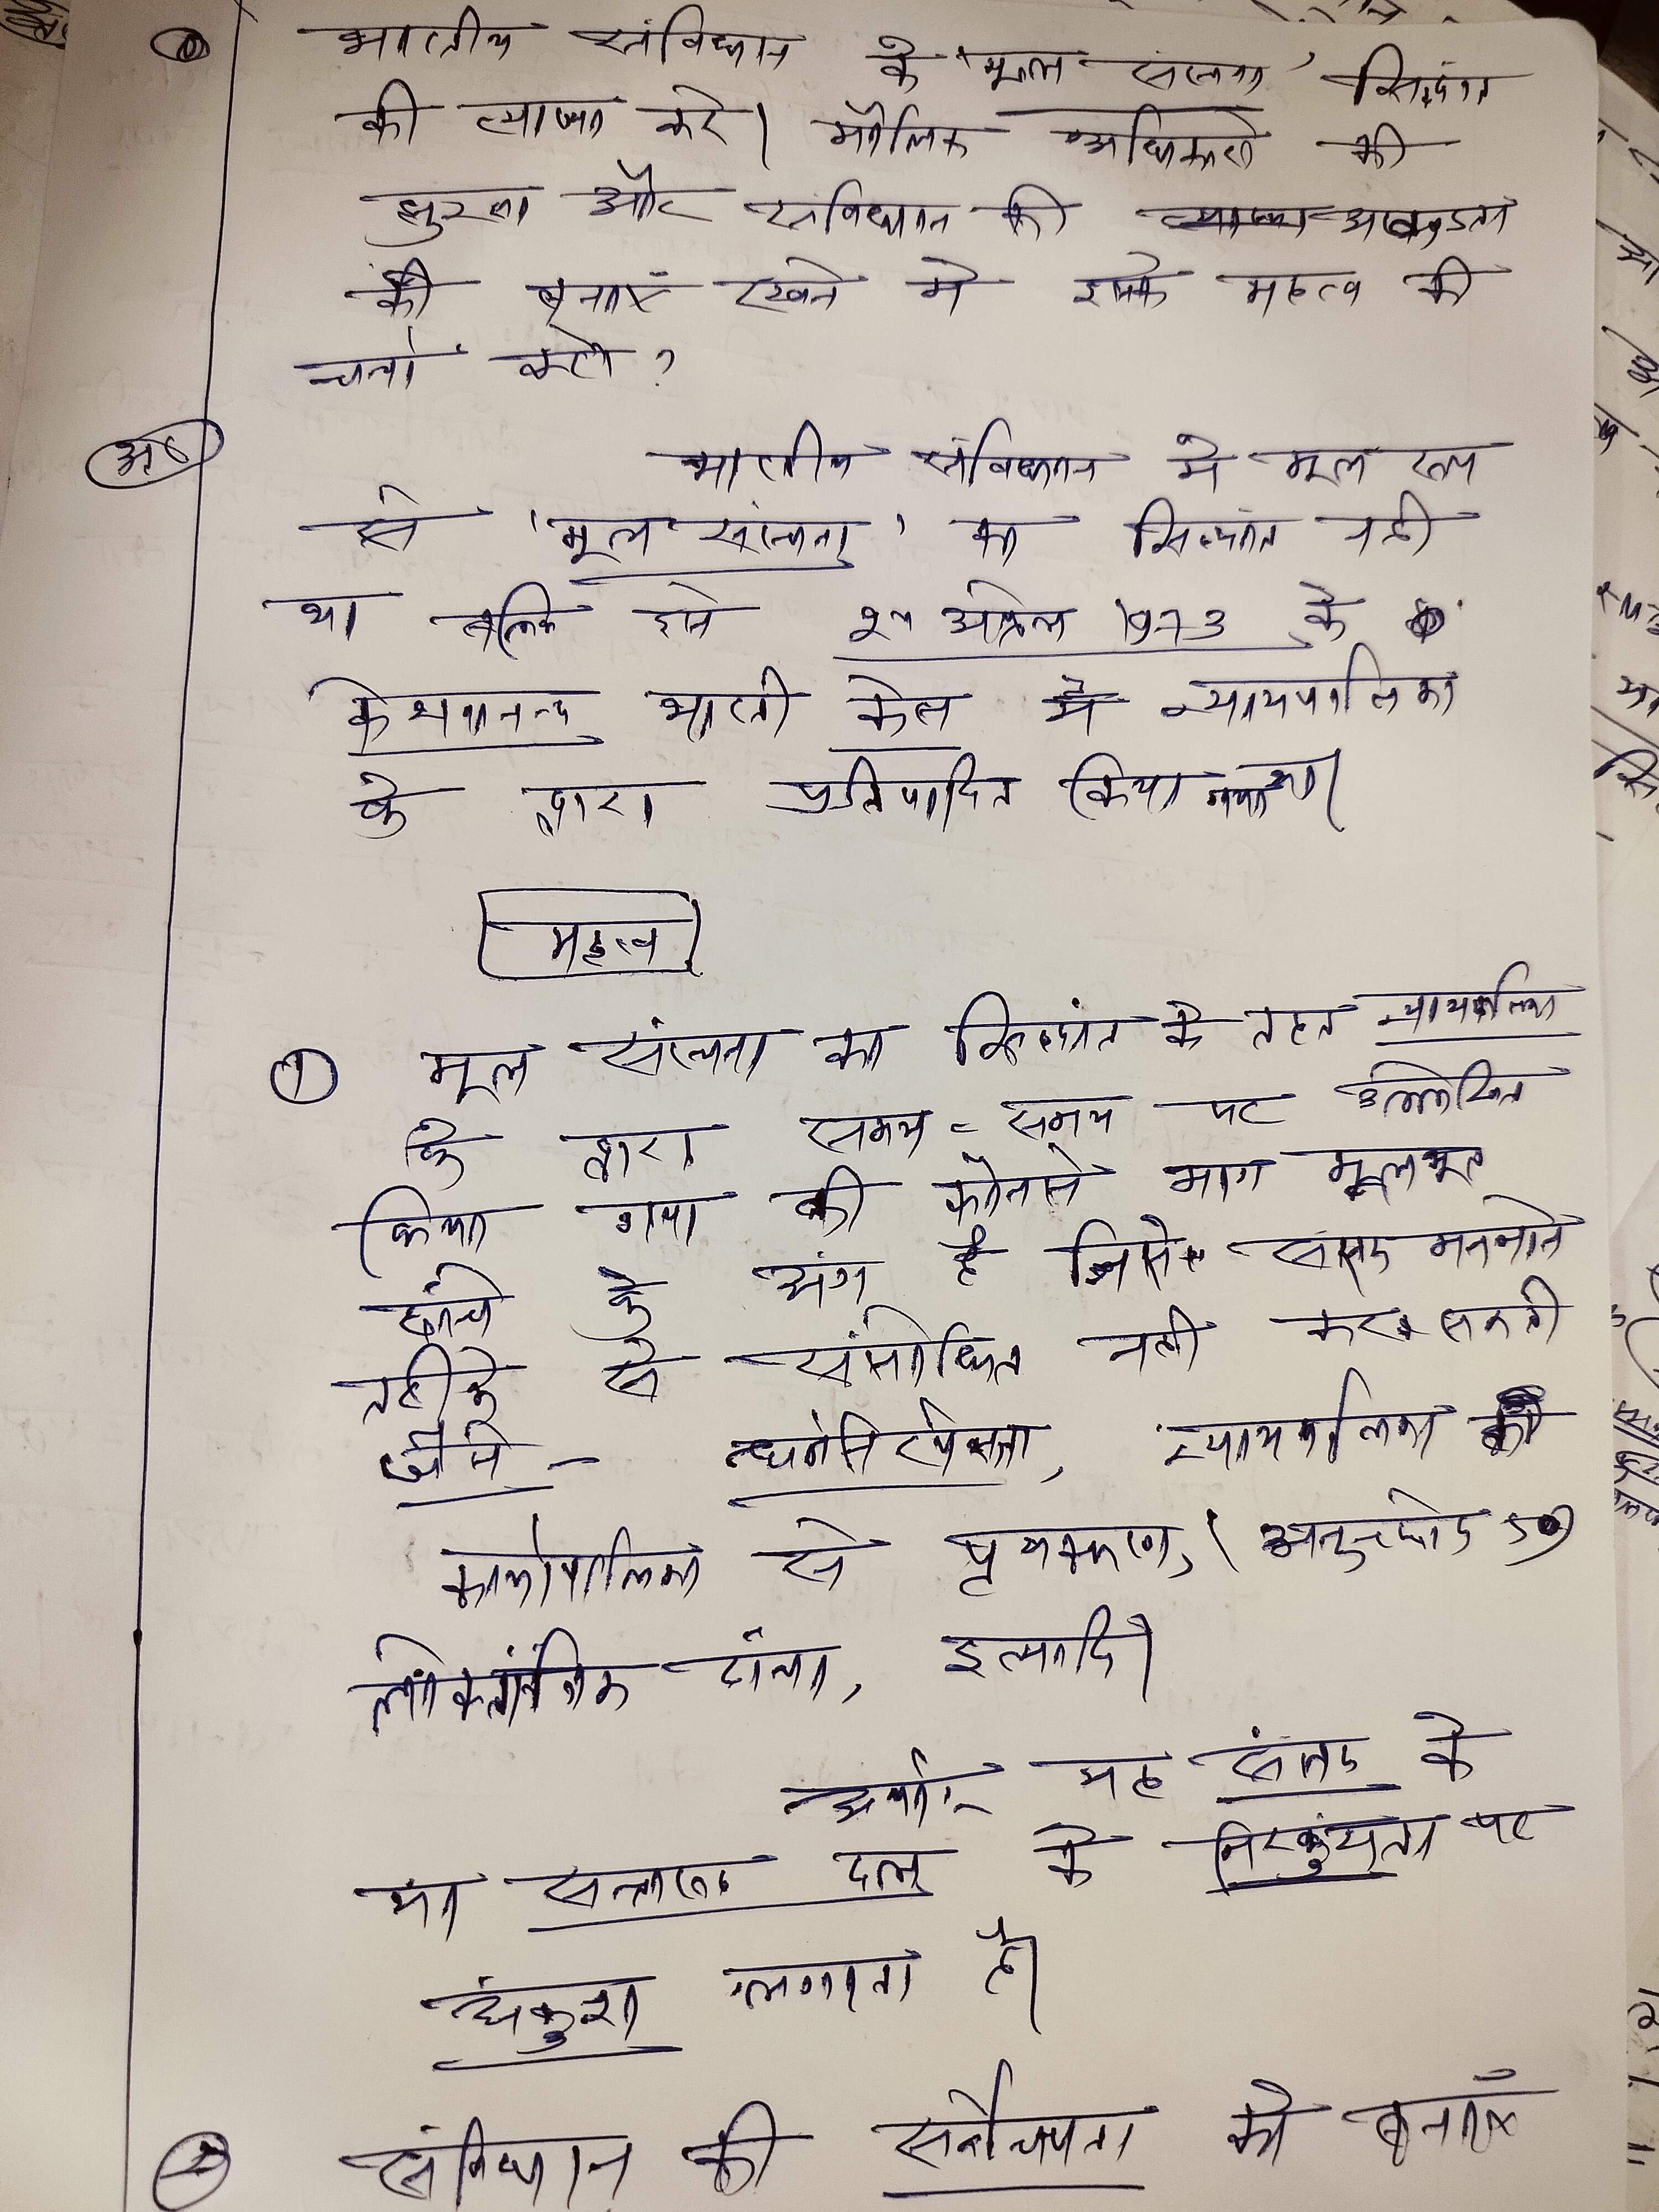 भारतीय संविधान के 'मूल संरचना' सिद्धांत
की व्याख्या करे। मौलिक अधिकारो की
सुरक्षा और संविधान की अखण्डता
को बनाए रखने मे इसके महत्व की
चर्चा करो?
भारतीय संविधान मे मूल रूप
से 'मूल संरचना' का सिद्धांत नही
था बल्कि इसे अप्रैल 1973 के
केशवानन्द भारती केस मे न्यायपालिका
के द्वारा प्रतिपादित किया गया था।
महत्व
① मूल संरचना का सिद्धांत के तहत न्यायपालिका
के द्वारा समय-समय पर उल्लेखित
किया गया की कौनसे भाग मूलभूत
ढांचे के अंग है जिसे संसद मनमाने
तरीके से संसोधित नही कर सकती
जैसे - धर्मनिरपेक्षता, न्यायपालिका की
कार्यपालिका से पृथक्करण, (अनुच्छेद 50)
लोकतांत्रिक ढांचा, इत्यादि।
अर्थात् यह संसद के
या सत्तारूढ दल के निरकुंशता पर
अंकुश लगाता है।
② संविधान की सर्वोच्चता को बनाएँ